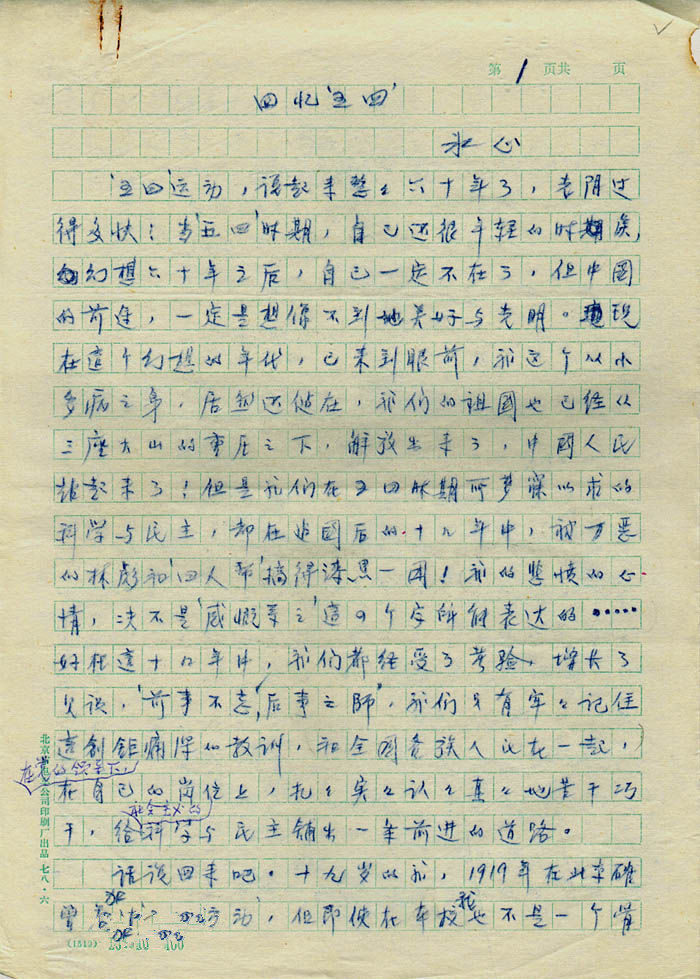 第 1 页共 页
回忆'五四'
冰心
'五四'运动，说起来整々六十年了，光阴过
得多快！当'五四'时期，自己还很年轻的时候，
幻想六十年之后，自己一定不在了，但中國
的前途，一定是想像不到地美好与光明。现
在這个幻想的年代，已来到眼前，我这个从小
多病之身，居然还健在，我们的祖國也已经从
三座大山的重压之下，解放出来了，中國人民
站起来了！但是我们在五四时期所梦寐以求的
科学与民主，却在建國后的十几年中，被万恶
的林彪和'四人帮'搞得漆黑一团！我的悲愤的心
情，决不是'感慨系之'這四个字所能表达的……
好在這十几年中，我们都经受了考验，增长了
见识，'前事不忘，后事之师'，我们只有牢々记住
這创钜痛深的教训，和全國各族人民在一起，
在党的领导下，
在自己的岗位上，扎々实々认々真々地苦干巧
社会主义的
干，给科学与民主铺出一条前进的道路。
话说回来吧。十九岁的我，1919年在北京确
曾 运动'，但即使在本校我也不是一个骨
北京 公司印刷厂出品 七八·六
(1519) 400